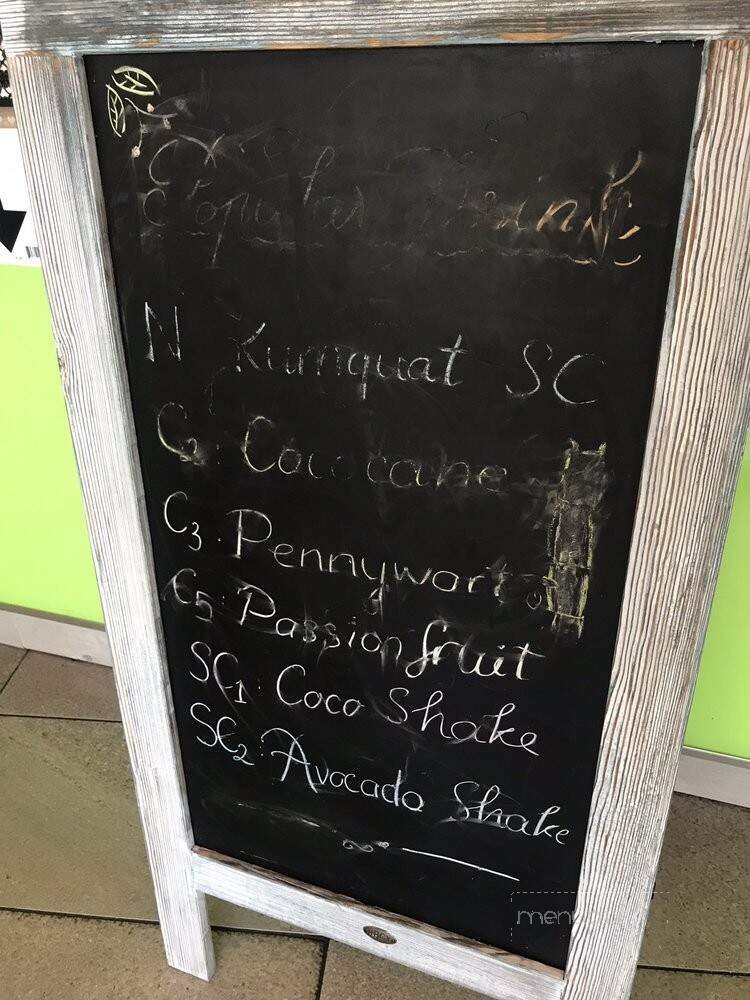 Popular Drink
N Kumquat SC
C2. Cococane
C3. Pennywort
C5: Passion fruit
SC1: Coco Shake
SC2: Avocado Shake